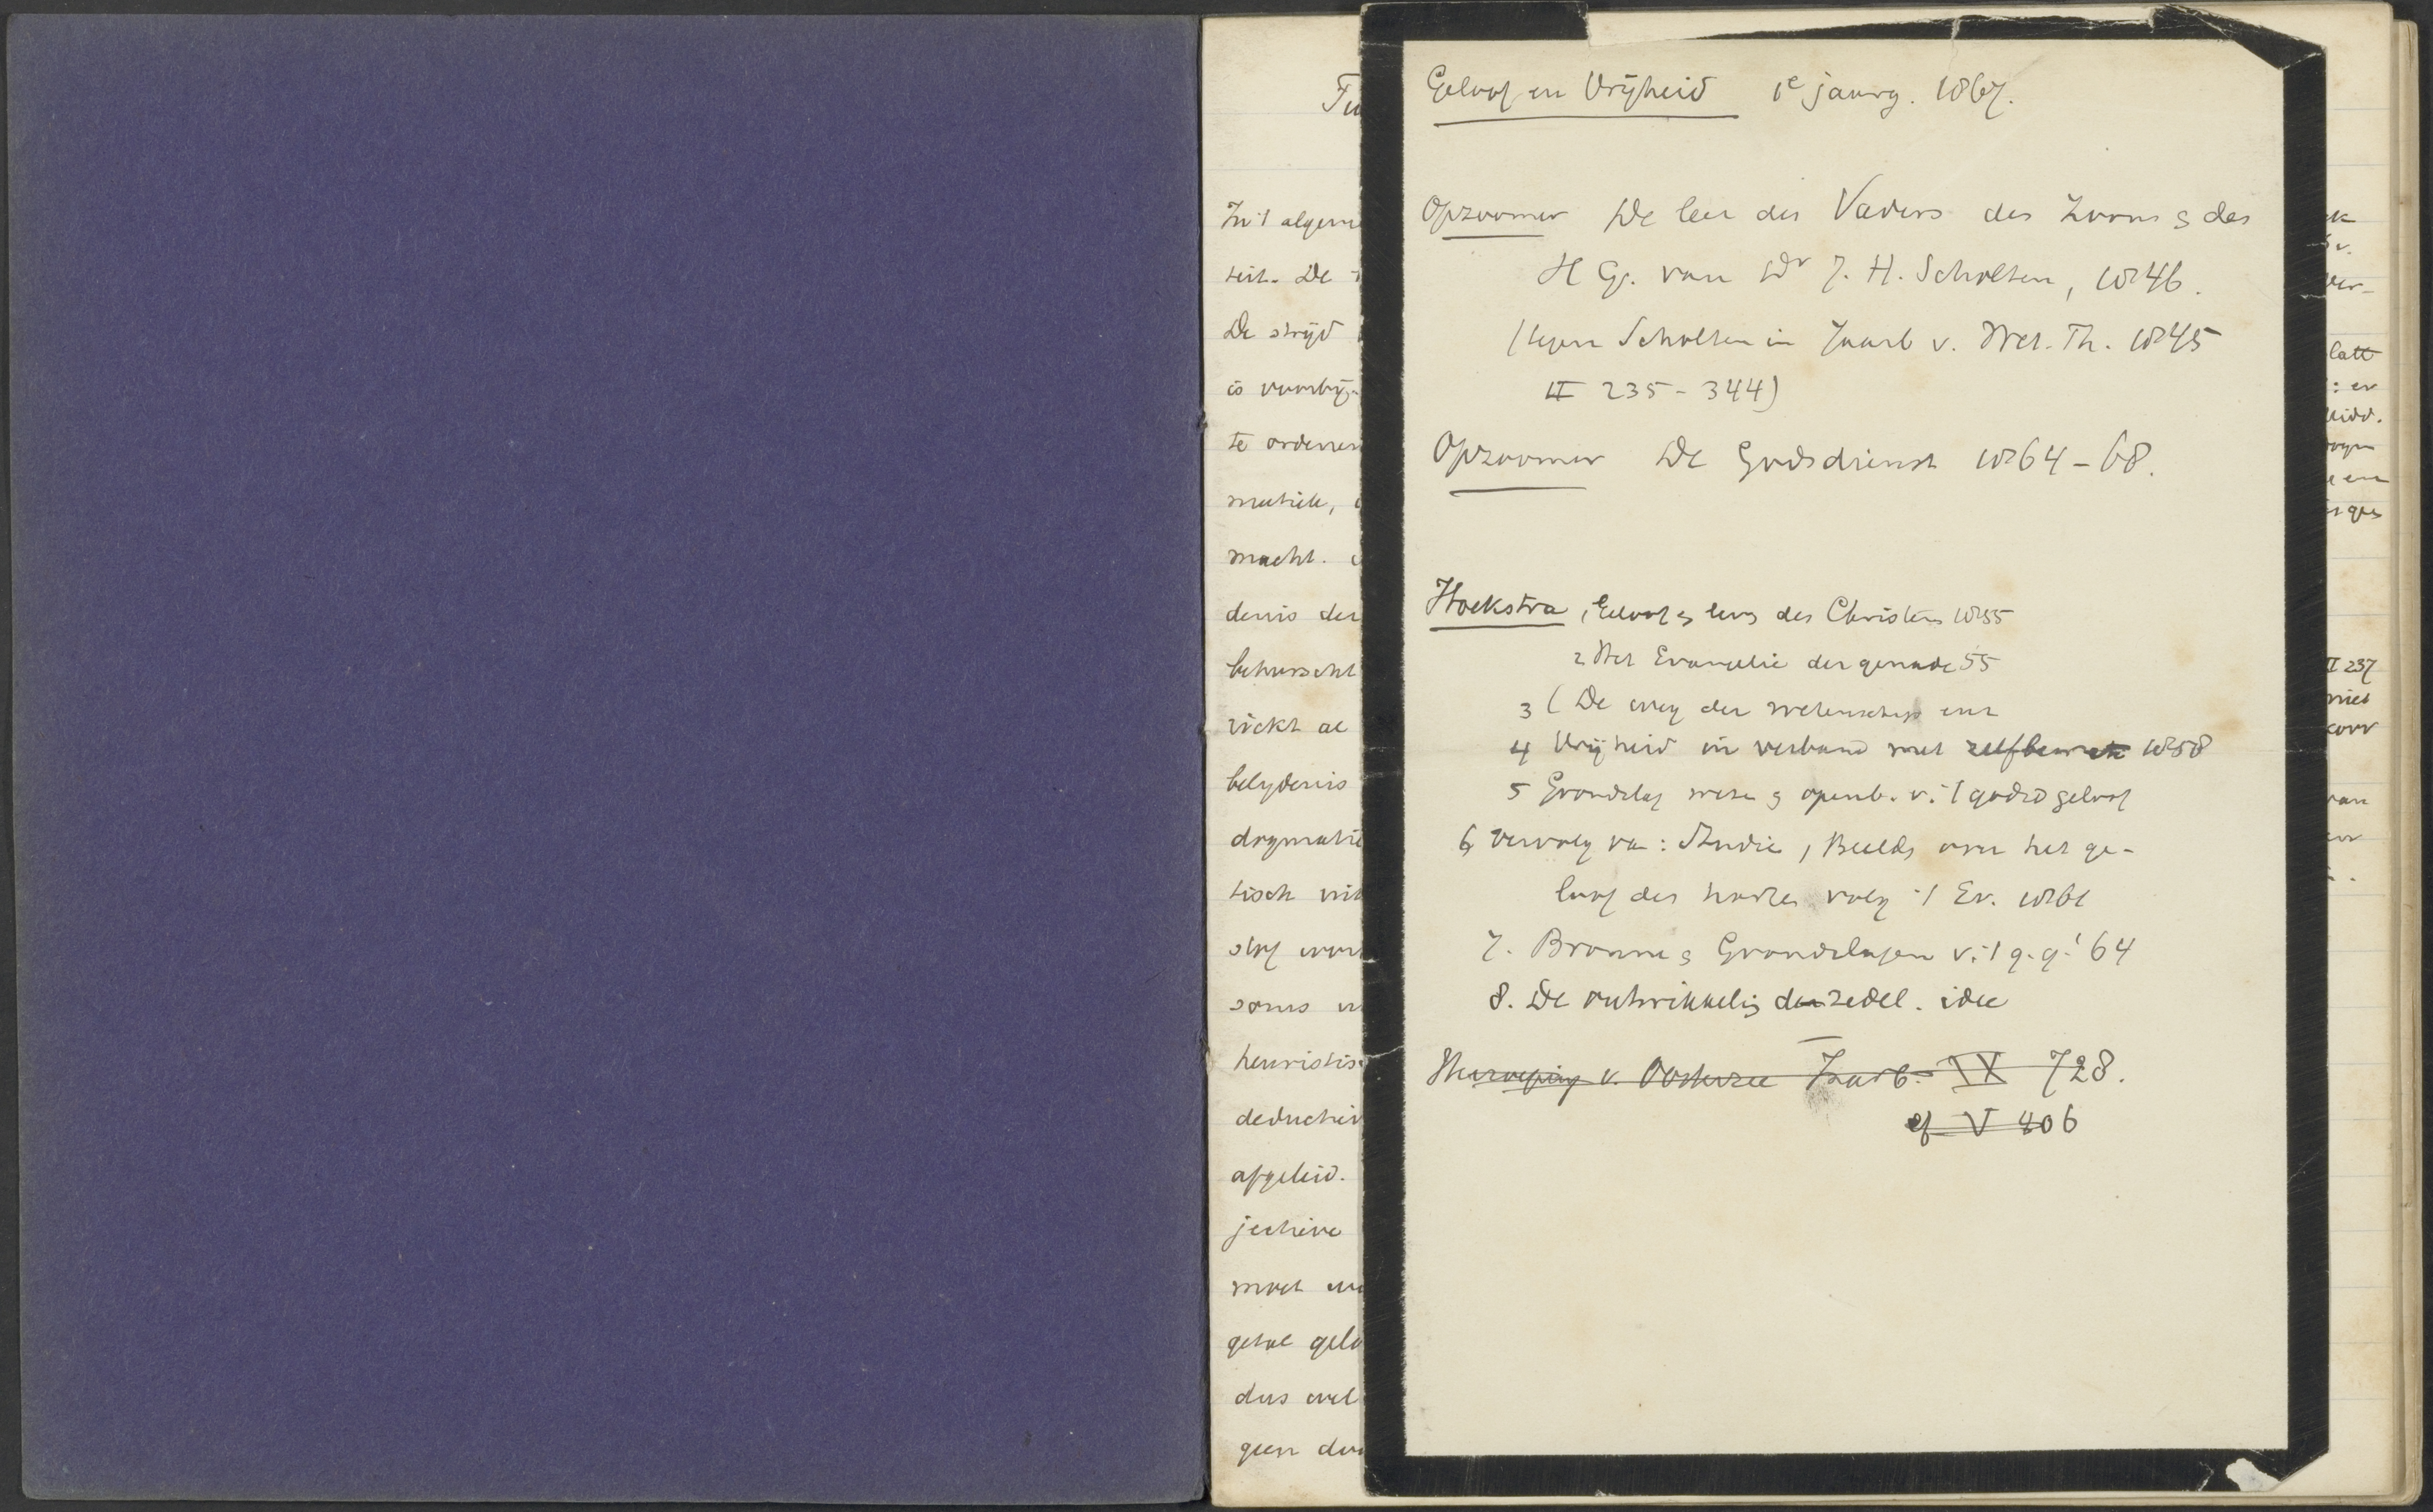 Tu
In 't algeme
teit. De
De strijd
is voorbij-
te ordenen
matiek,
macht.
denis der
beheerscht
zicht al
belijdenis
dogmatie
tisch uit
stof
soms
heuristis
deductiev
afgeleid.
jectieve
moet
getal gelo
dus wel
geen
Geloof en Vrijheid 1e jaarg. 1867.
Opzoomer De leer des Vaders des Zoons & des
H G. van Dr J. H. Scholten, 1846.
(tegen Scholten in Jaarb v. Wet. Th. 1845
II 235-344)
Opzoomer De Godsdienst 1864-68.
Hoekstra 1 Geloof & leven des Christens 1855
2 Het Evangelie der genade 55
3 ( De weg der wetenschap enz
4 Vrijheid in verband met zelfbewustz 1858
5 Grondslag wezen & openb. v. 't godsd geloof
6 Vervolg van: Studie, Beelds over het ge-
loof des harten volg 't Ev. 1861
7. Bronnen & Grondslagen v. 't g. g. '64
8. De ontwikkeling der zedel. idee
v. Oosterzee Jaarb. IX 728.
cf V 406
ver-
latt
: er
II 237
niet
voor
van